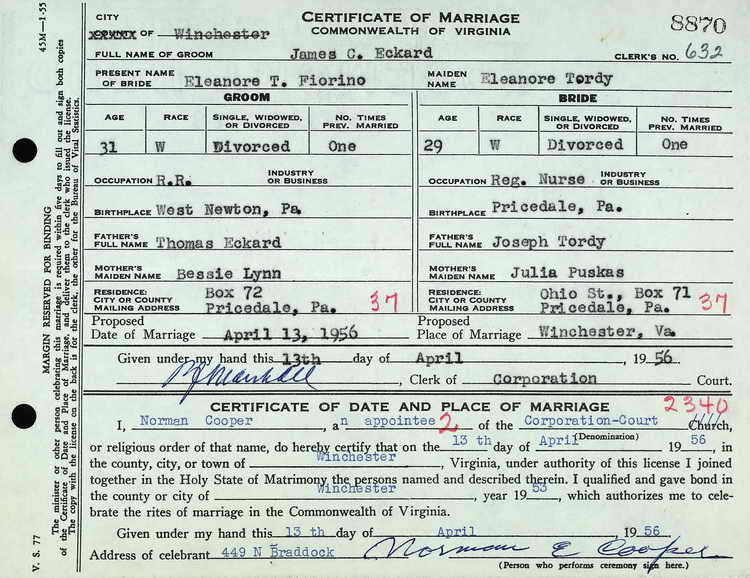 CITY
CERTIFICATE OF MARRIAGE
8870
OF Winchester
COMMONWEALTH OF VIRGINIA
FULL NAME OF GROOM James C. Eckard CLERK'S NO. 632
PRESENT NAME OF BRIDE Eleanore T. Fiorino MAIDEN NAME Eleanore Tordy
GROOM BRIDE
AGE RACE SINGLE, WIDOWED, OR DIVORCED NO. TIMES PREV. MARRIED AGE RACE SINGLE, WIDOWED, OR DIVORCED NO. TIMES PREV. MARRIED
31 W Divorced One 29 W Divorced One
OCCUPATION R.R. INDUSTRY OR BUSINESS OCCUPATION Reg. Nurse INDUSTRY OR BUSINESS
BIRTHPLACE West Newton, Pa. BIRTHPLACE Pricedale, Pa.
FATHER'S FULL NAME Thomas Eckard FATHER'S FULL NAME Joseph Tordy
MOTHER'S MAIDEN NAME Bessie Lynn MOTHER'S MAIDEN NAME Julia Puskas
RESIDENCE: Box 72 RESIDENCE: Ohio St., Box 71
CITY OR COUNTY MAILING ADDRESS Pricedale, Pa. 37 CITY OR COUNTY MAILING ADDRESS Pricedale, Pa. 37
Proposed Date of Marriage April 13, 1956 Proposed Place of Marriage Winchester, Va.
Given under my hand this 13th day of April, 1956
Marshall, Clerk of Corporation Court.
CERTIFICATE OF DATE AND PLACE OF MARRIAGE 2340
I, Norman Cooper, an appointee 2 of the Corporation-Court Church,
(Denomination)
or religious order of that name, do hereby certify that on the 13 th day of April 1956, in
the county, city, or town of Winchester, Virginia, under authority of this license I joined
together in the Holy State of Matrimony the persons named and described therein. I qualified and gave bond
in the county or city of Winchester, year 1953, which authorizes me to cele-
brate the rites of marriage in the Commonwealth of Virginia.
Given under my hand this 13 th day of April 1956
Address of celebrant 449 N Braddock Norman E Cooper
(Person who performs ceremony sign here.)
45M—1-55
V. S. 77
MARGIN RESERVED FOR BINDING
The minister or other person celebrating this marriage is required within five days to fill out and sign both copies
of the Certificate of Date and Place of Marriage, and deliver them to the clerk who issued the license.
The copy with the license on the back is for the clerk, the other for the Bureau of Vital Statistics.